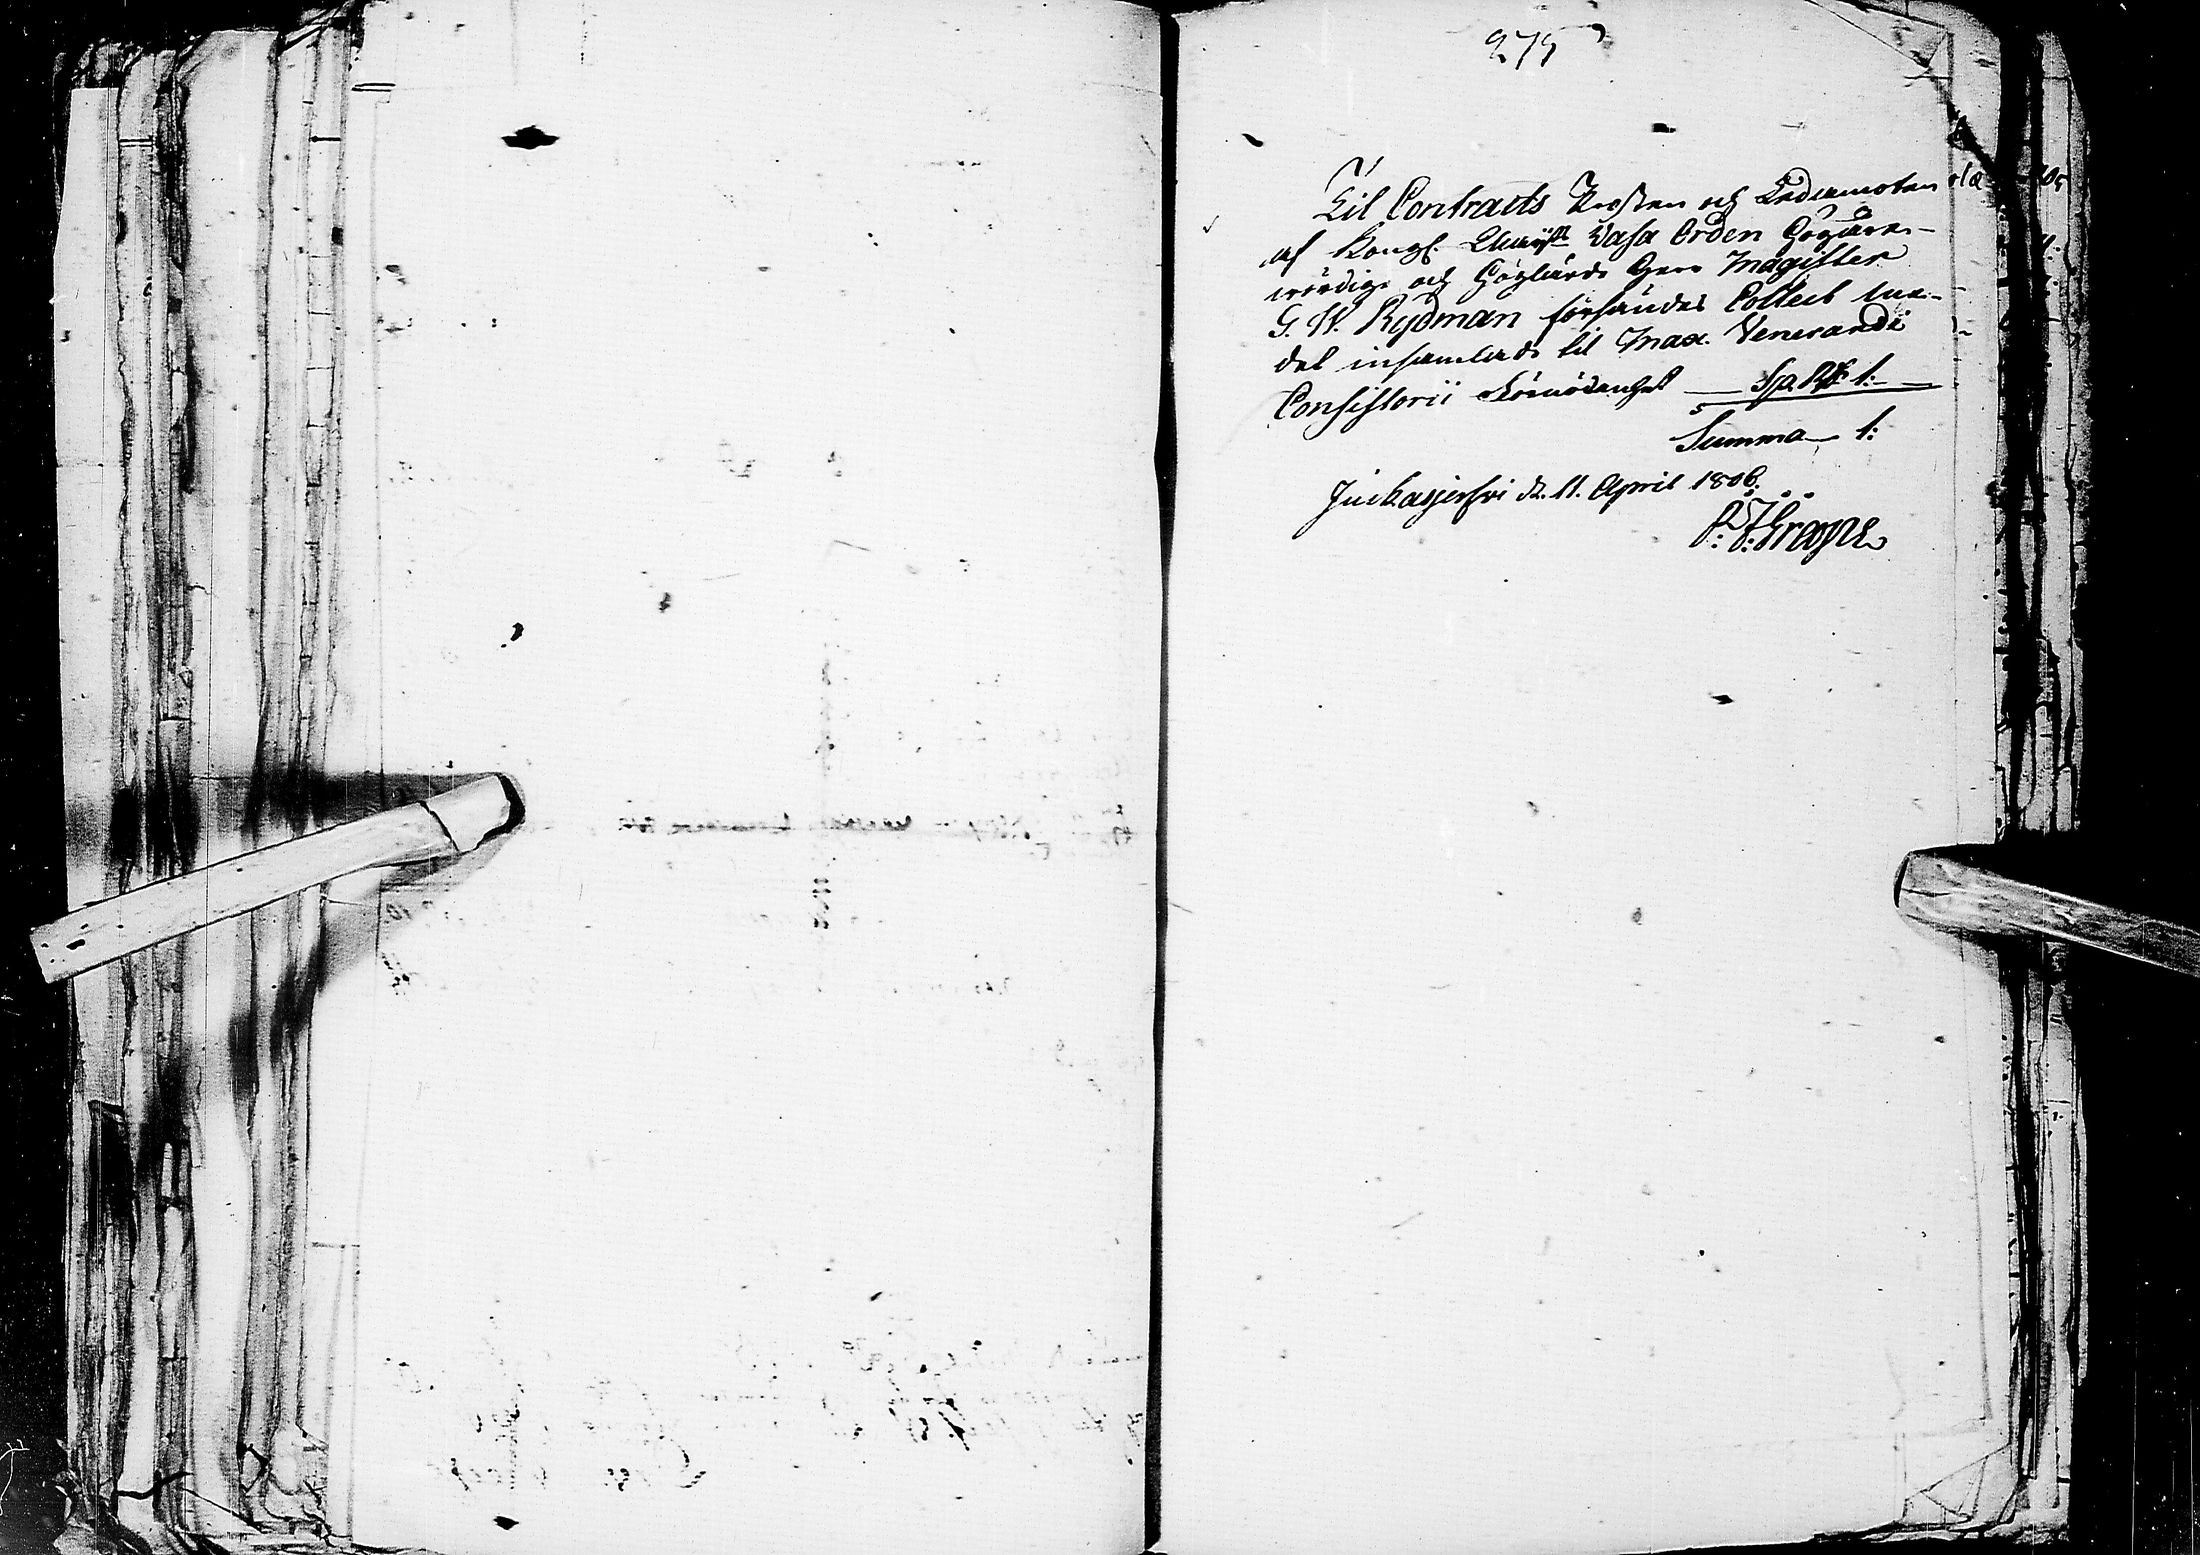 275
Til Contracts Prosten och Ledamoten
af Kongl. Wasa Orden Högäre-
wördige och Höglärde Herr Magister
G. W. Rydman försändes Collect me-
del insamlade til Max. Venerandi
Consistorii — Sp. Rd 1:—
Summa — 1:
Juckasjerfvi d. 11. April 1806.
Grape